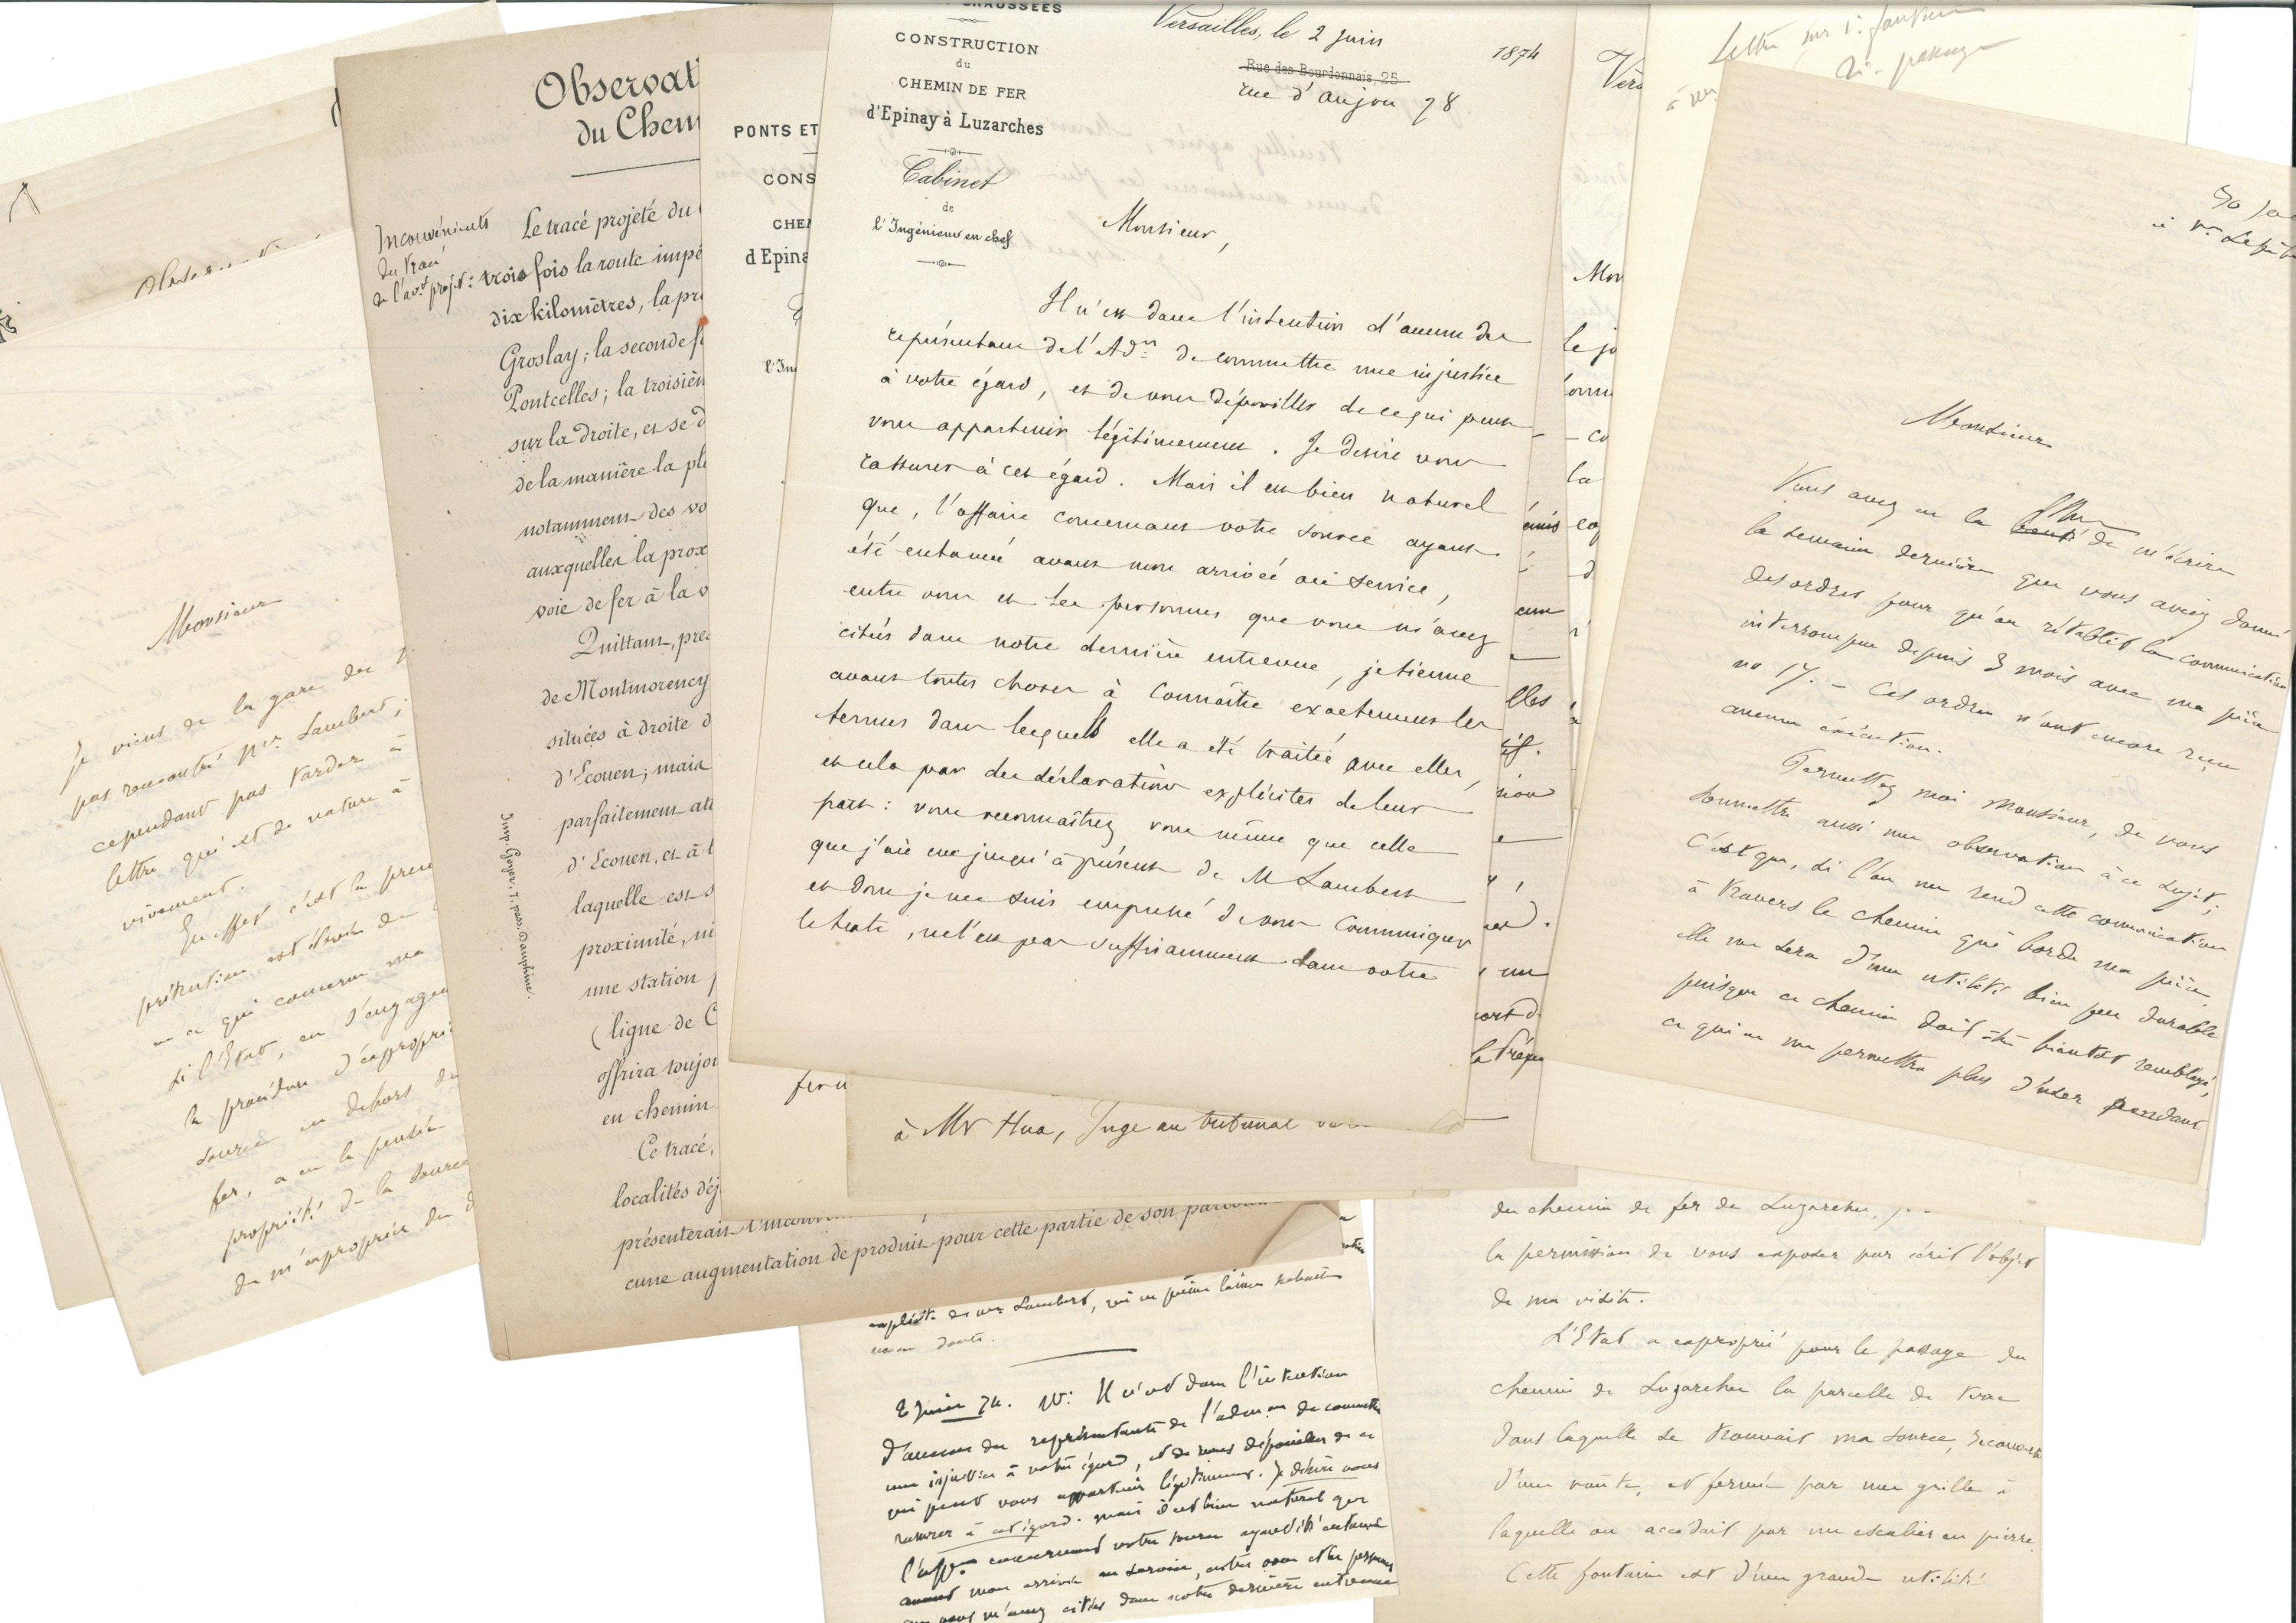 CHAUSSÉES
CONSTRUCTION
du
CHEMIN DE FER
d'Epinay à Luzarches
Cabinet
de
l'Ingénieur en chef
Versailles, le 2 Juin 1874
Rue des Bourdonnais, 25
rue d'anjou 78
Monsieur,
Il n'est dans l'intention d'aucun des
représentans de l'Adon de commettre une injustice
à votre égard, et de vous dépouiller de ce qui peut
vous appartenir légitimement. Je désire vous
rassurer à cet égard. Mais il est bien naturel
que, l'affaire concernant votre source ayant
été entamée avant mon arrivée au service,
entre vous et les personnes que vous m'avez
citées dans notre dernière entrevue, je tienne
avant toutes choses à connaître exactement les
termes dans lesquels elle a été traitée avec elles,
et cela par des déclarations explicites de leur
part : vous reconnaîtrez vous même que celle
que j'aie eue jusqu'à présent de M Lambert
et dont je me suis empressé de vous communiquer
le texte, ne l'est pas suffisamment dans votre
à Mr Hua, Juge au tribunal
Observat
du Chem
Inconvénients
du tracé
de l'avt projet :
Le tracé projeté du
trois fois la route impé
dix kilomètres, la pr
Groslay ; la seconde f
Pontcelles ; la troisièm
sur la droite, et se d
de la manière la pl
notamment des vo
auxquelles la prox
voie de fer à la v
Quittant, prè
de Montmorency
situées à droite d
d'Ecouen ; mais
parfaitement att
d'Ecouen, et à l
laquelle est s
proximité, ni
une station
(ligne de C
offrira toujou
en chemin
Ce tracé,
localités déj
présenterait l'inconvén
cune augmentation de produit pour cette partie de son parcours
Imp. Goyer, 7, pass. Dauphine.
PONTS ET
CONS
CHEM
d'Epina
l'In
Monsieur
Je viens de la gare des
pas rencontré Mr. Lambert ;
cependant pas tarder à
lettre qui est de nature à
vivement.
En effet c'est la prem
prétention est élevée de
en ce qui concerne ma
si l'Etat, en s'engagea
la procédure d'expropri
source en dehors du
fer, a eu la pensée
propriété de la source
de m'exproprier du d
Lettre sur 1°
2° passage
Monsieur
Vous avez eu la bonté de m'écrire
la semaine dernière que vous aviez donné
des ordres pour qu'on rétablit la communication
interrompue depuis 3 mois avec ma pièce
no 17. – Ces ordres n'ont encore reçu
aucune exécution.
Permettez moi Monsieur, de vous
soumettre aussi une observation à ce sujet ;
C'est que, si l'on me rend cette communication
à travers le chemin qui borde ma pièce,
elle me sera d'une utilité bien peu durable
puisque ce chemin doit être bientôt remblayé,
ce qui ne me permettra plus d'user pendant
du chemin de fer de Luzarches,
la permission de vous exposer par écrit l'objet
de ma visite.
L'Etat a exproprié pour le passage du
chemin de Luzarches la parcelle de terre
dans laquelle se trouvait ma source, recouverte
d'une voûte, et fermée par une grille à
laquelle on accédait par un escalier en pierre
Cette fontaine est d'une grande utilité
explicite de Mr Lambert, qui ne puisse laisser subsister
aucun doute.
2 Juin 74. Mr: Il n'est dans l'intention
d'aucun des représentants de l'admon de commettre
une injustice à votre égard, et de vous dépouiller de ce
qui peut vous appartenir légitimement. Je désire vous
rassurer à cet égard. mais il est bien naturel que
l'affre concernant votre source ayant été entamée
avant mon arrivée au service, entre vous et les personnes
que vous m'avez citées dans notre dernière entrevue